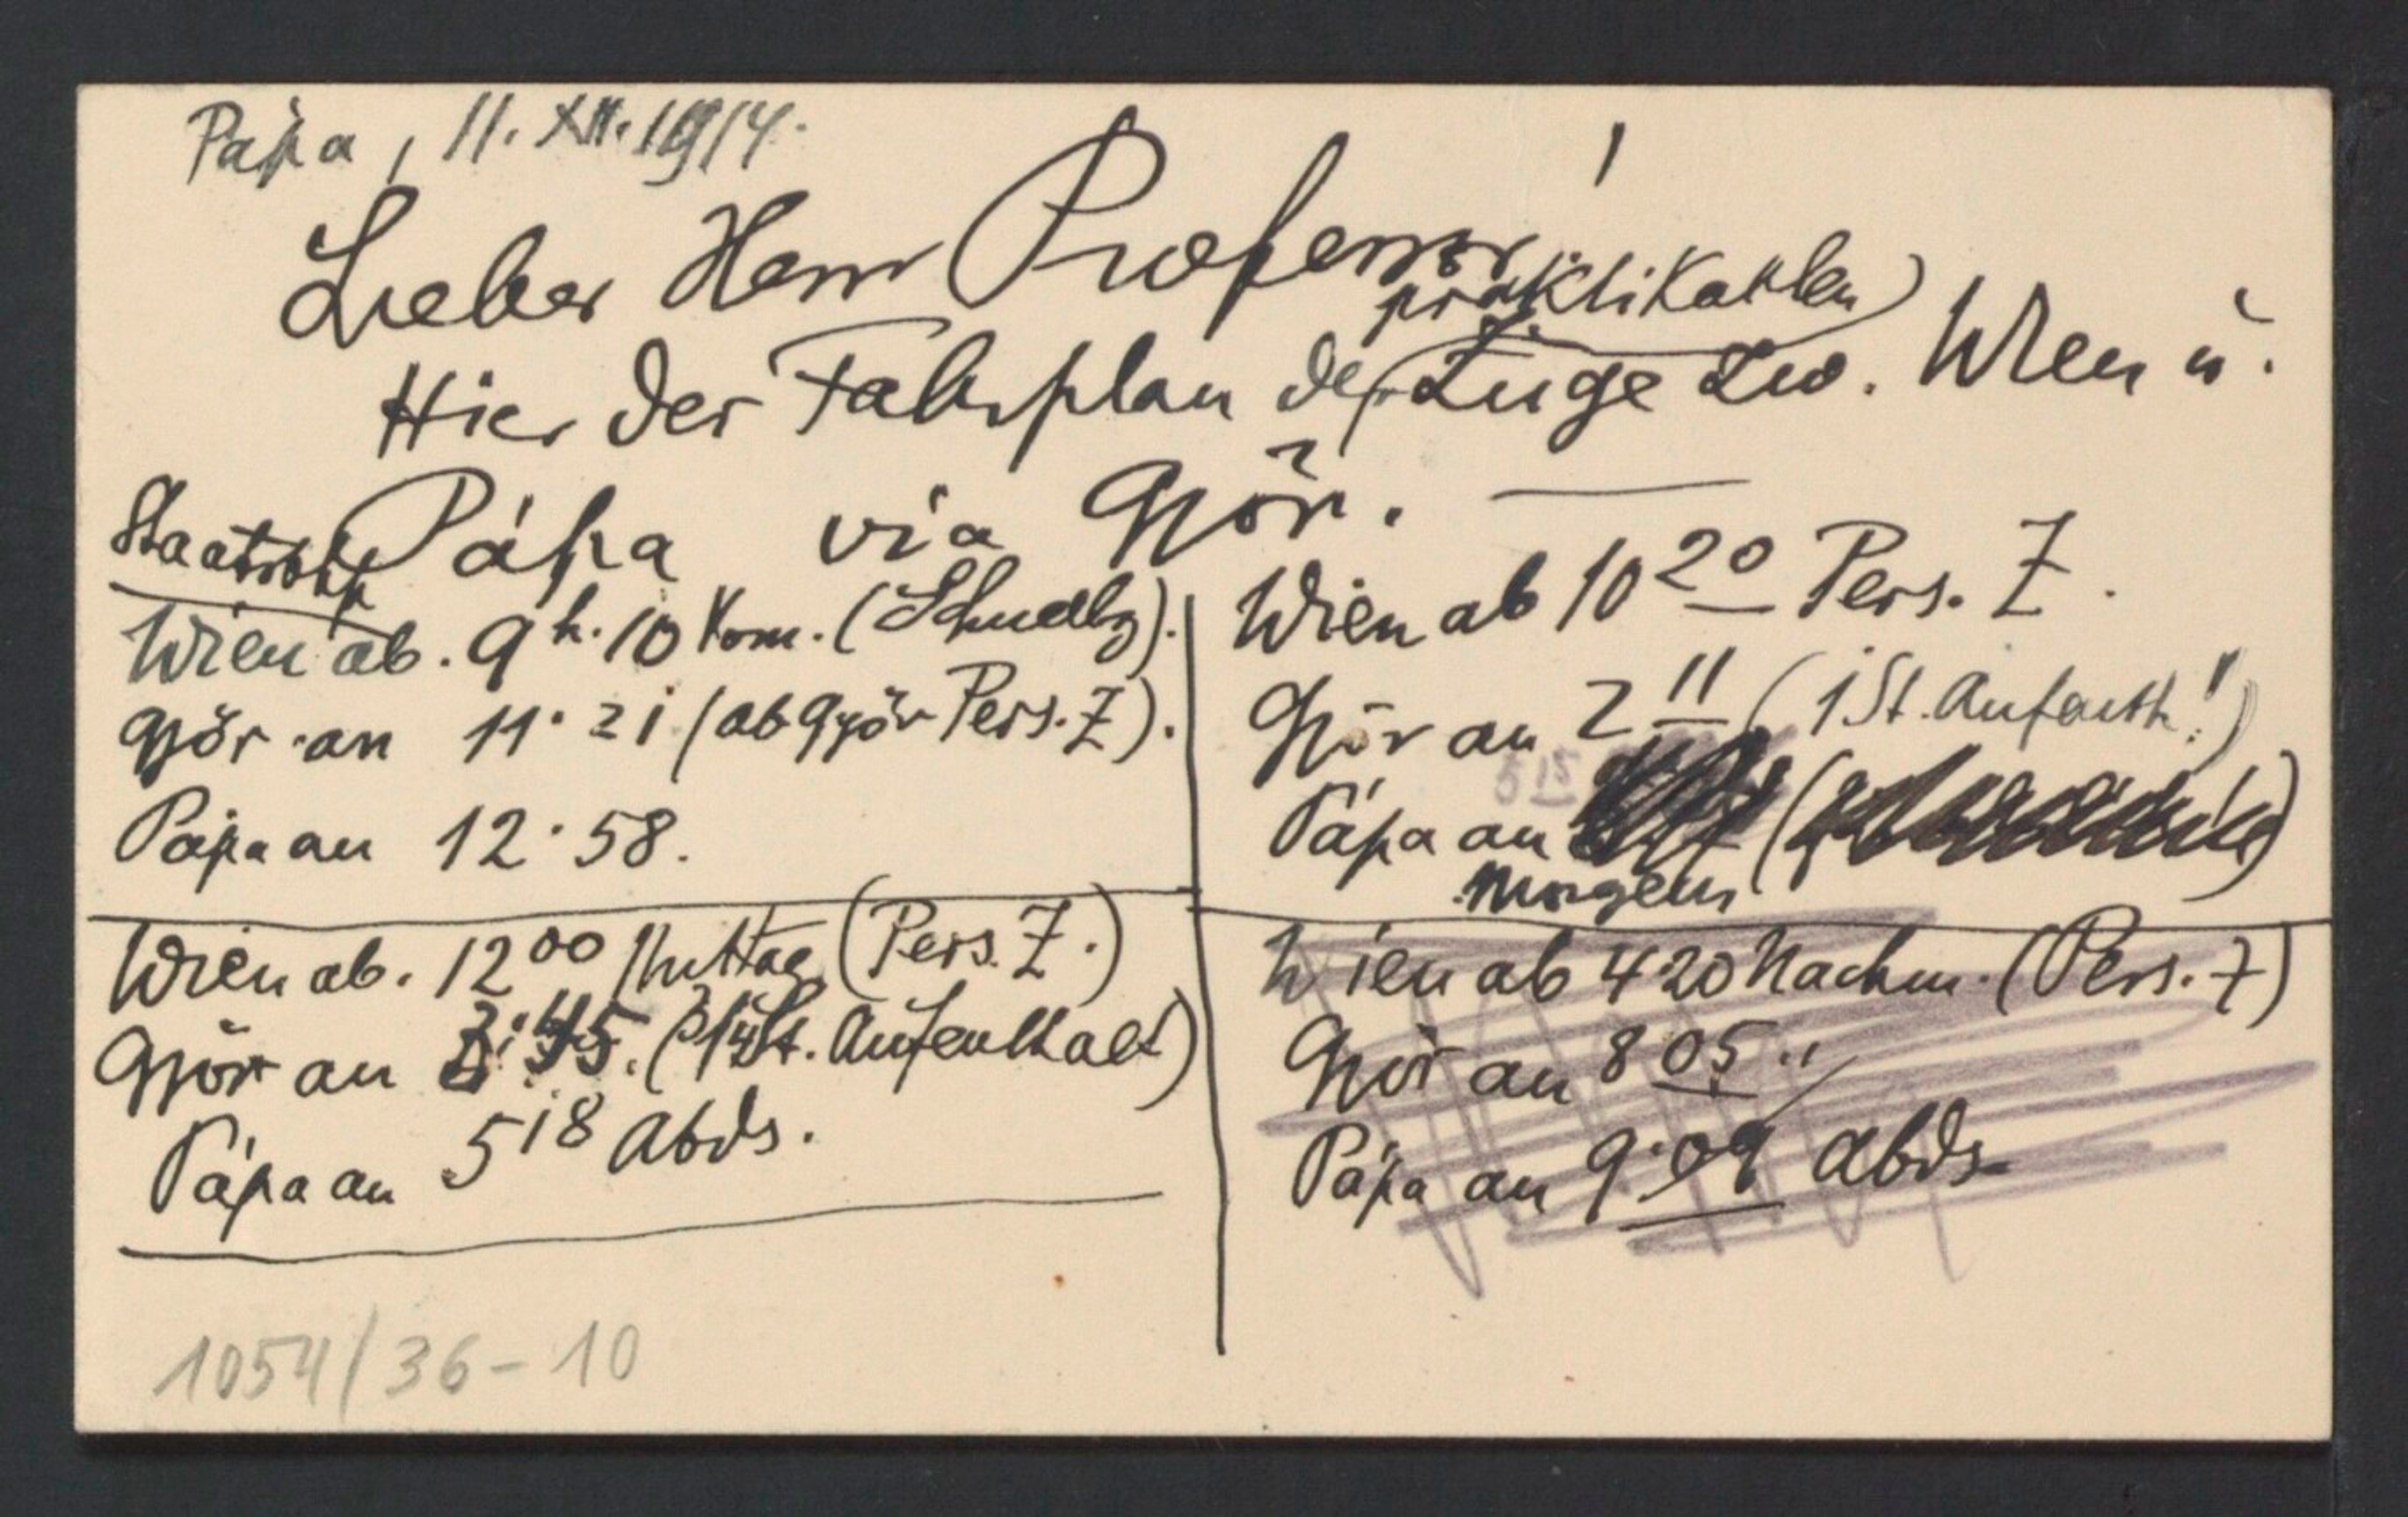 Pápa, 11. XII. 1914.
Lieber Herr Professor!
praktikablen
Hier der Fahrplan der Züge zw. Wien u.
Pápa via Győr.
Staatsbhf
Wien ab. 9 h. 10 Vorm. (Schnellzg).
Győr an 11·21 (ab Győr Pers. Z).
Pápa an 12·58.
Wien ab. 12 00 Mittag (Pers. Z.)
Győr an 3·45. (St. Aufenthalt)
Pápa an 5 18 Abds.
Wien ab 10 20 Pers. Z.
Győr an 2 11 (1 St. Aufenth!)
5 15
Pápa an
Morgens
Wien ab 4·20 Nachm. (Pers. Z)
Győr an 8 05 "
Pápa an 9·09 Abds
1054/36-10